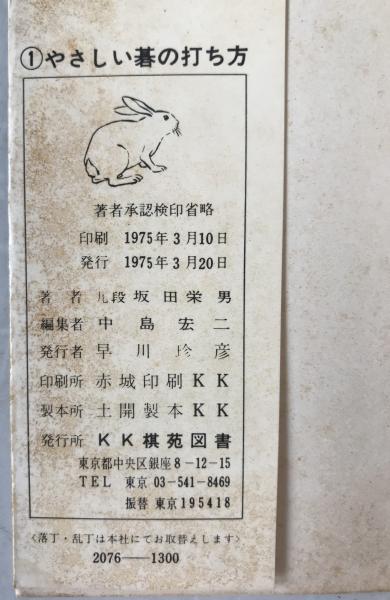 ①やさしい碁の打ち方
著者承認検印省略
印刷 1975年3月10日
発行 1975年3月20日
著者 九段 坂田栄男
編集者 中島宏二
発行者 早川珍彦
印刷所 赤城印刷KK
製本所 土開製本KK
発行所 KK棋苑図書
東京都中央区銀座8-12-15
TEL 東京03-541-8469
振替 東京195418
〈落丁・乱丁は本社にてお取替えします〉
2076――1300